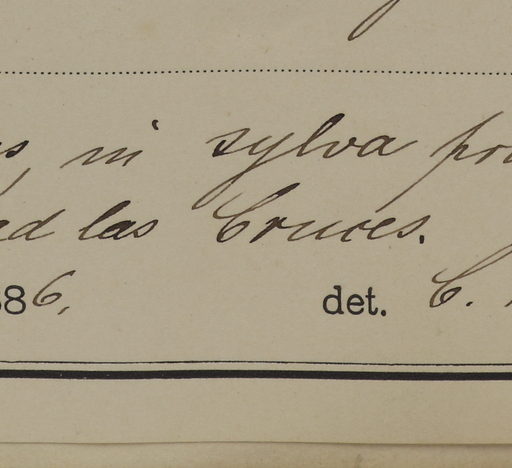 s, in sylva pr
ad las Cruces.
886. det. C.